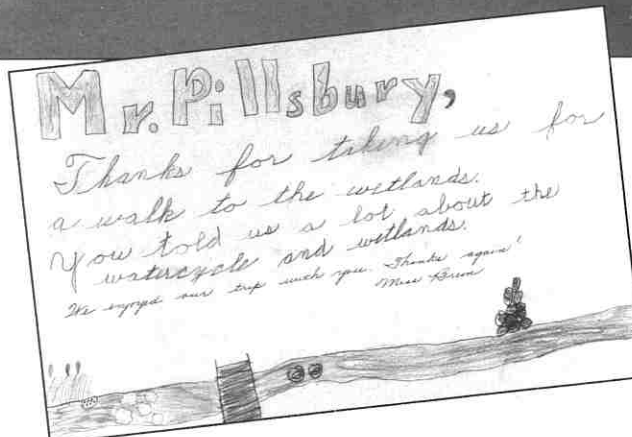 Mr. Pillsbury,
Thanks for taking us for
a walk to the wetlands.
You told us a lot about the
watercycle and wetlands.
We enjoyed our trip with you. Thanks again!
Miss